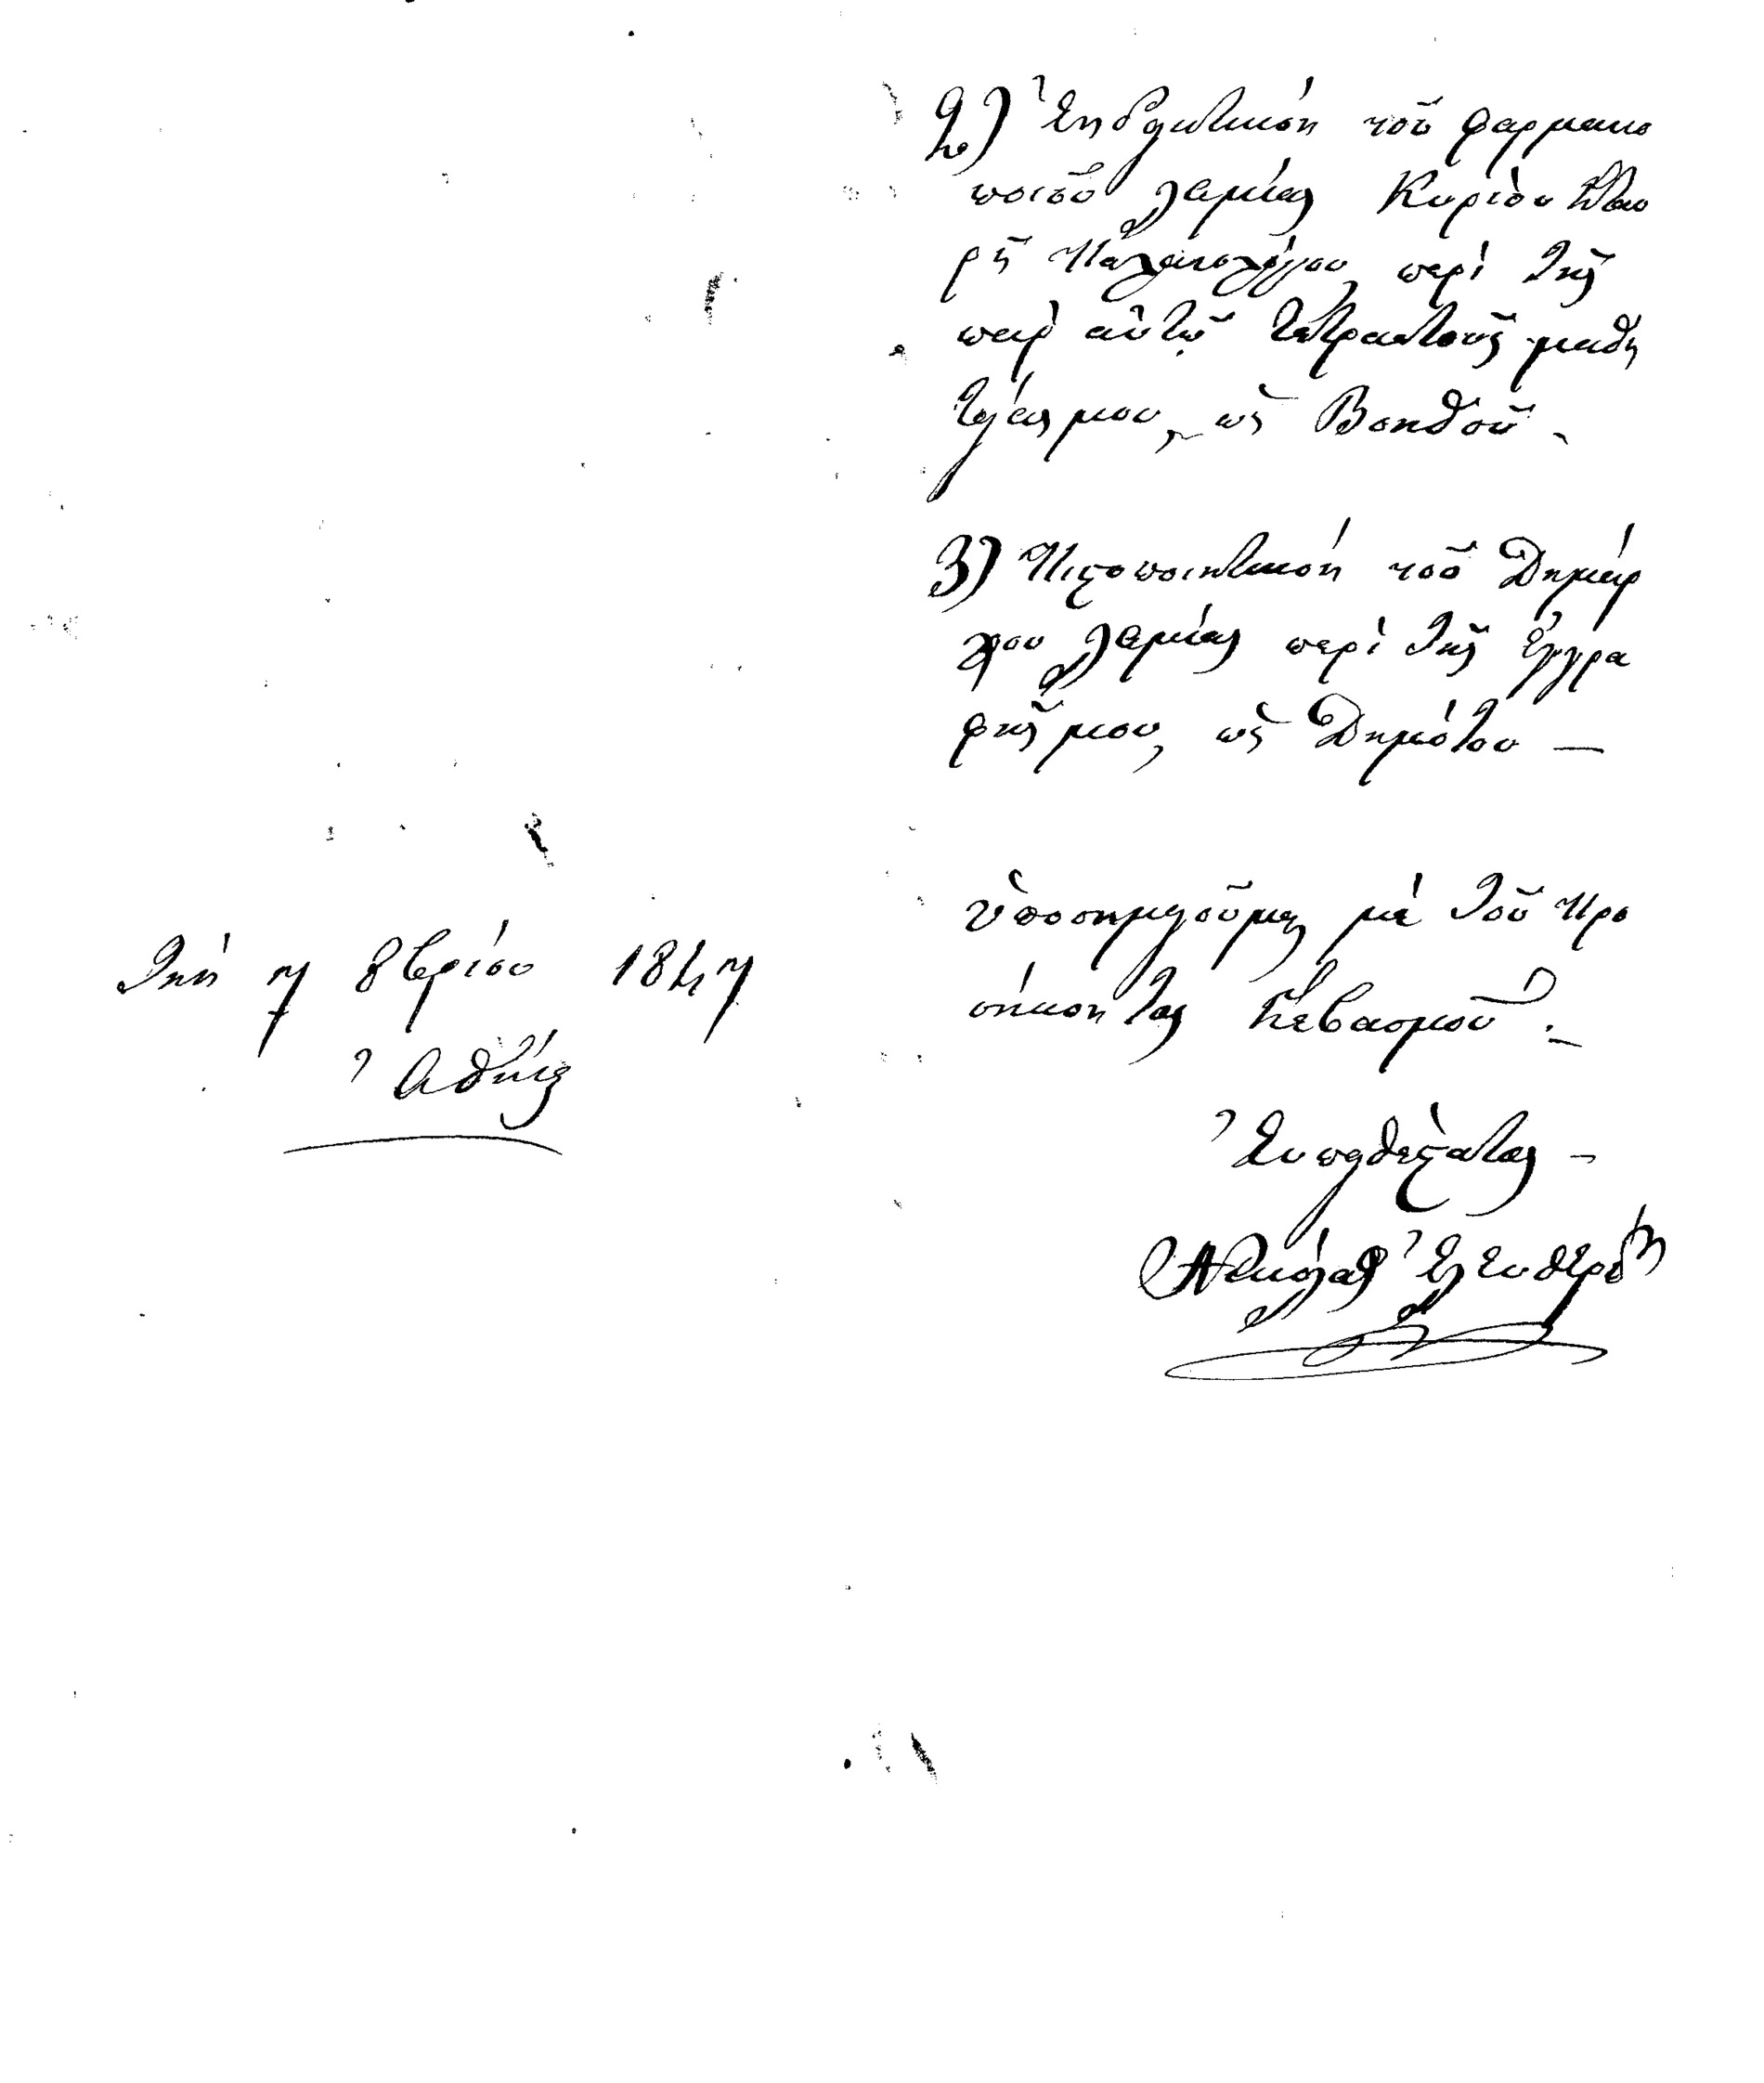 2) Ἐνδεικτικόν τοῦ φαρμακο
ποιοῦ Λαμίας Κυρίου Σταυ
ρῆ Παλαιολόγου περὶ τῆς
παρ' αὐτῷ τετραετοῦς μαθη
τείας μου, ὡς Βοηθοῦ
3) Πιστοποιητικόν τοῦ Δημάρ
χου Λαμίας περὶ τῆς ἐγγρα
φῆς μου, ὡς Δημότου —
ὑποσημειοῦμαι μὲ τοῦ προ
σήκοντος Σεβασμοῦ.
Εὐπειθέστατος –
Νικόλαος Ἐλευθερί
Τὴν 7 8βρίου 1847
Ἀθήναι